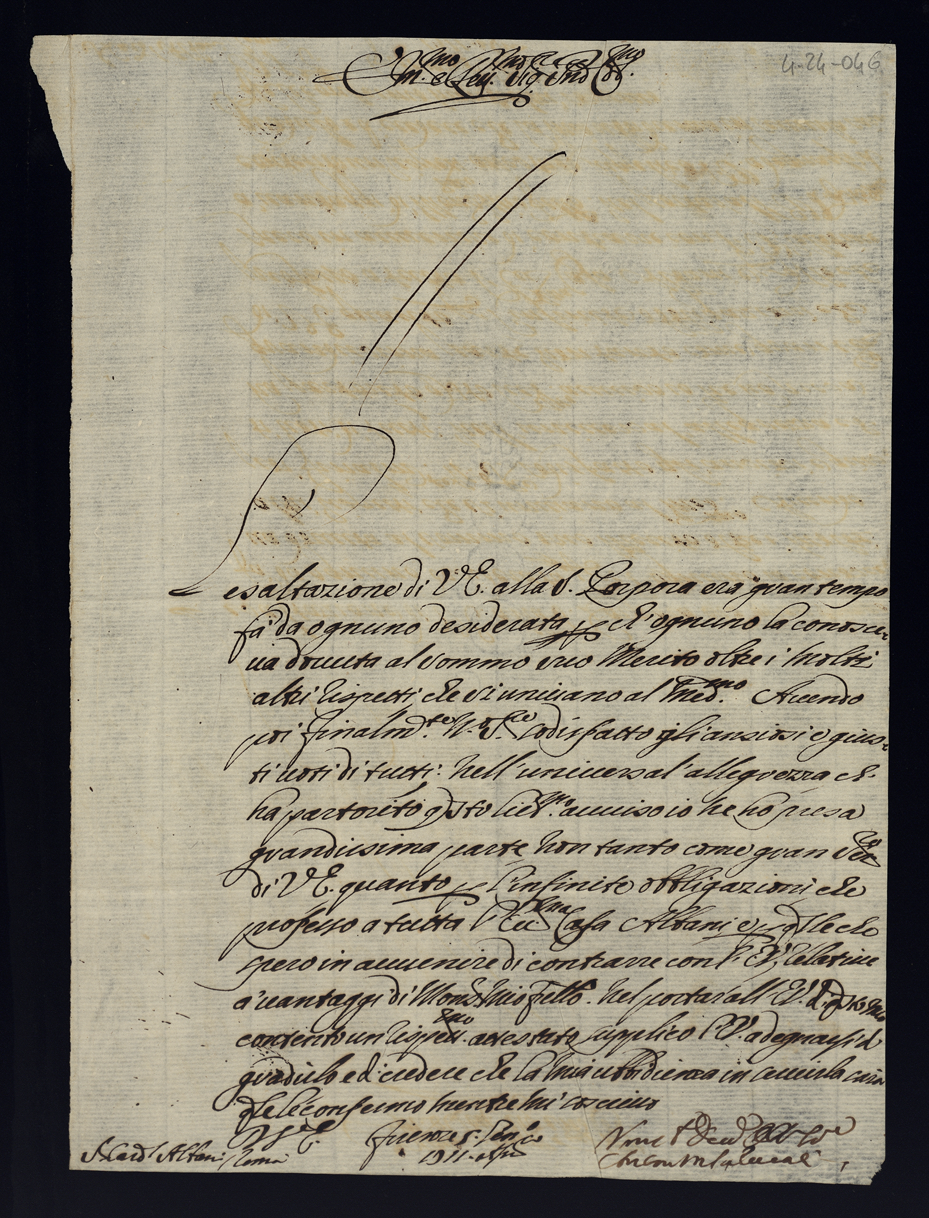 4-24-046
Em.mo e Rev.mo Sig.re Sig.re e P.rone Col.mo
L'
esaltazione di V.E. alla S. Porpora era gran tempo
fà da ognuno desiderata, p ch'ognuno la conosce-
va dovuta al sommo suo Merito oltre i molti
altri rispetti, che si univano al med.mo Avendo
poi finalm.te N. S.re sodisfatto gli ansiosi e gius-
ti voti di tutti: nell'universal'allegrezza ch'
ha partorito q.sto avviso io ne ho presa
grandissima parte non tanto come gran Ser.re
di V.E. quanto p l'infinite obbligazioni che
professo a tutta l'Ecc.ma Casa Albani e p q.lle che
spero in avvenire di contrarre con l'E.V. relative
a' vantaggi di Mons. mio f.ello. Nel portar all'E.V. d. q.sto mio
contento un rispett.mo attestato supplico l'E.V. a degnarsi d
gradirlo ed. credere che la mia ubbidienza in
le confermo mentre mi
Di V.E. Firenze 5. Gen.o
S. Card.l Albani Roma 1711